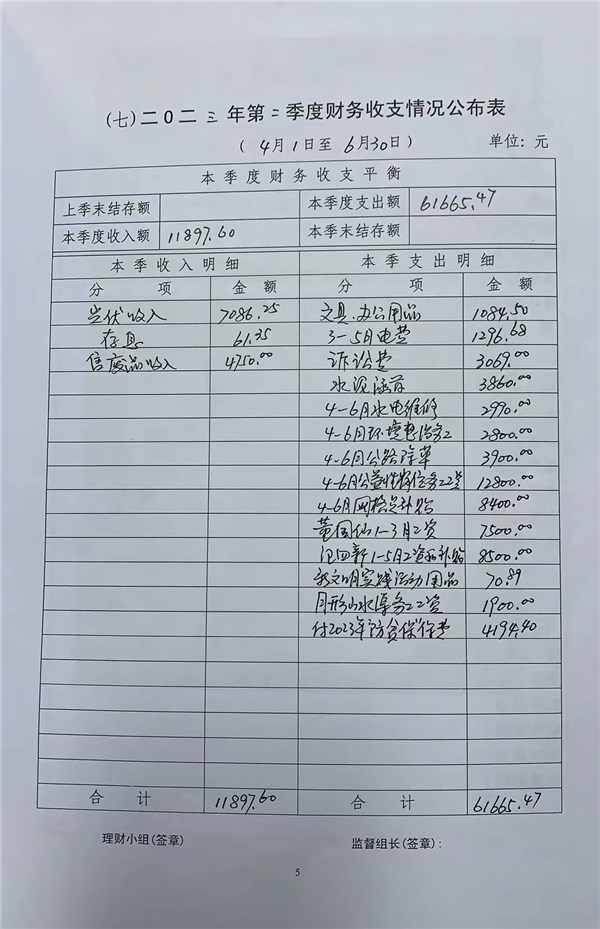 (七)二0二三年第二季度财务收支情况公布表
( 4月1日至6月30日) 单位: 元
本季度财务收支平衡
上季末结存额 本季度支出额 61665.47
本季度收入额 11897.60 本季末结存额
本季收入明细 本季支出明细
分 项 金 额 分 项 金 额
光伏收入 7086.25 文具.办公用品 1084.50
存息 61.35 3-5月电费 1296.68
售废品收入 4750.00 诉讼费 3069.00
水泥涵 3860.00
4-6月水电维修 2990.00
4-6月环境 务工 2800.00
4-6月公路除草 3900.00
4-6月公益性岗位务工工资 12800.00
4-6月网格员补贴 8400.00
黄国仙1-3月工资 7500.00
四新1-5月工资和补贴 8500.00
新文明实践活动用品 70.89
月形山水库务工工资 1900.00
付2023年防贫保 费 4194.40
合 计 11897.60 合 计 61665.47
理财小组(签章) 监督组长(签章):
5